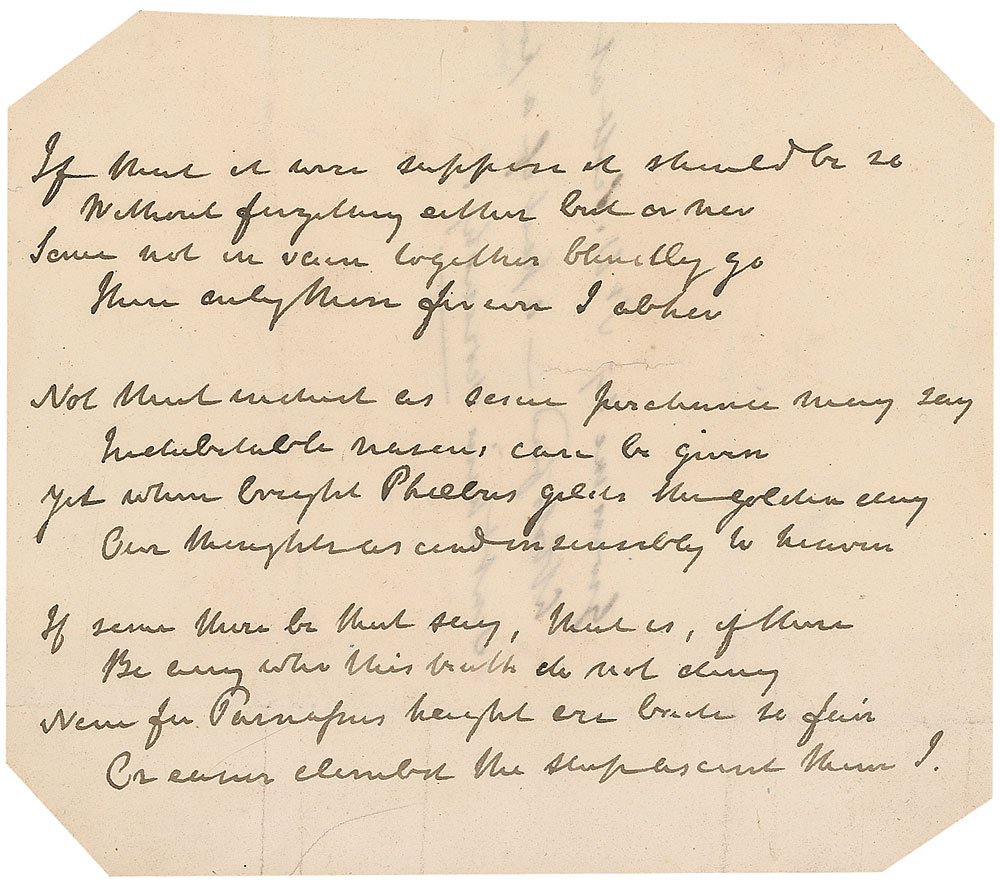 If that it were suppose it should be so
Without forgetting either but or nor
Some not in vain together blindly go
There only those for ever I abhor
Not that indeed as some perchance may say
Indubitable reasons can be given
Yet when bright Phœbus gilds the golden day
Our thoughts ascend insensibly to heaven
If some there be that say, that is, if there
Be any who this truth do not deny
None for Parnassus height are so fair
Or climbed the steep ascent than I.